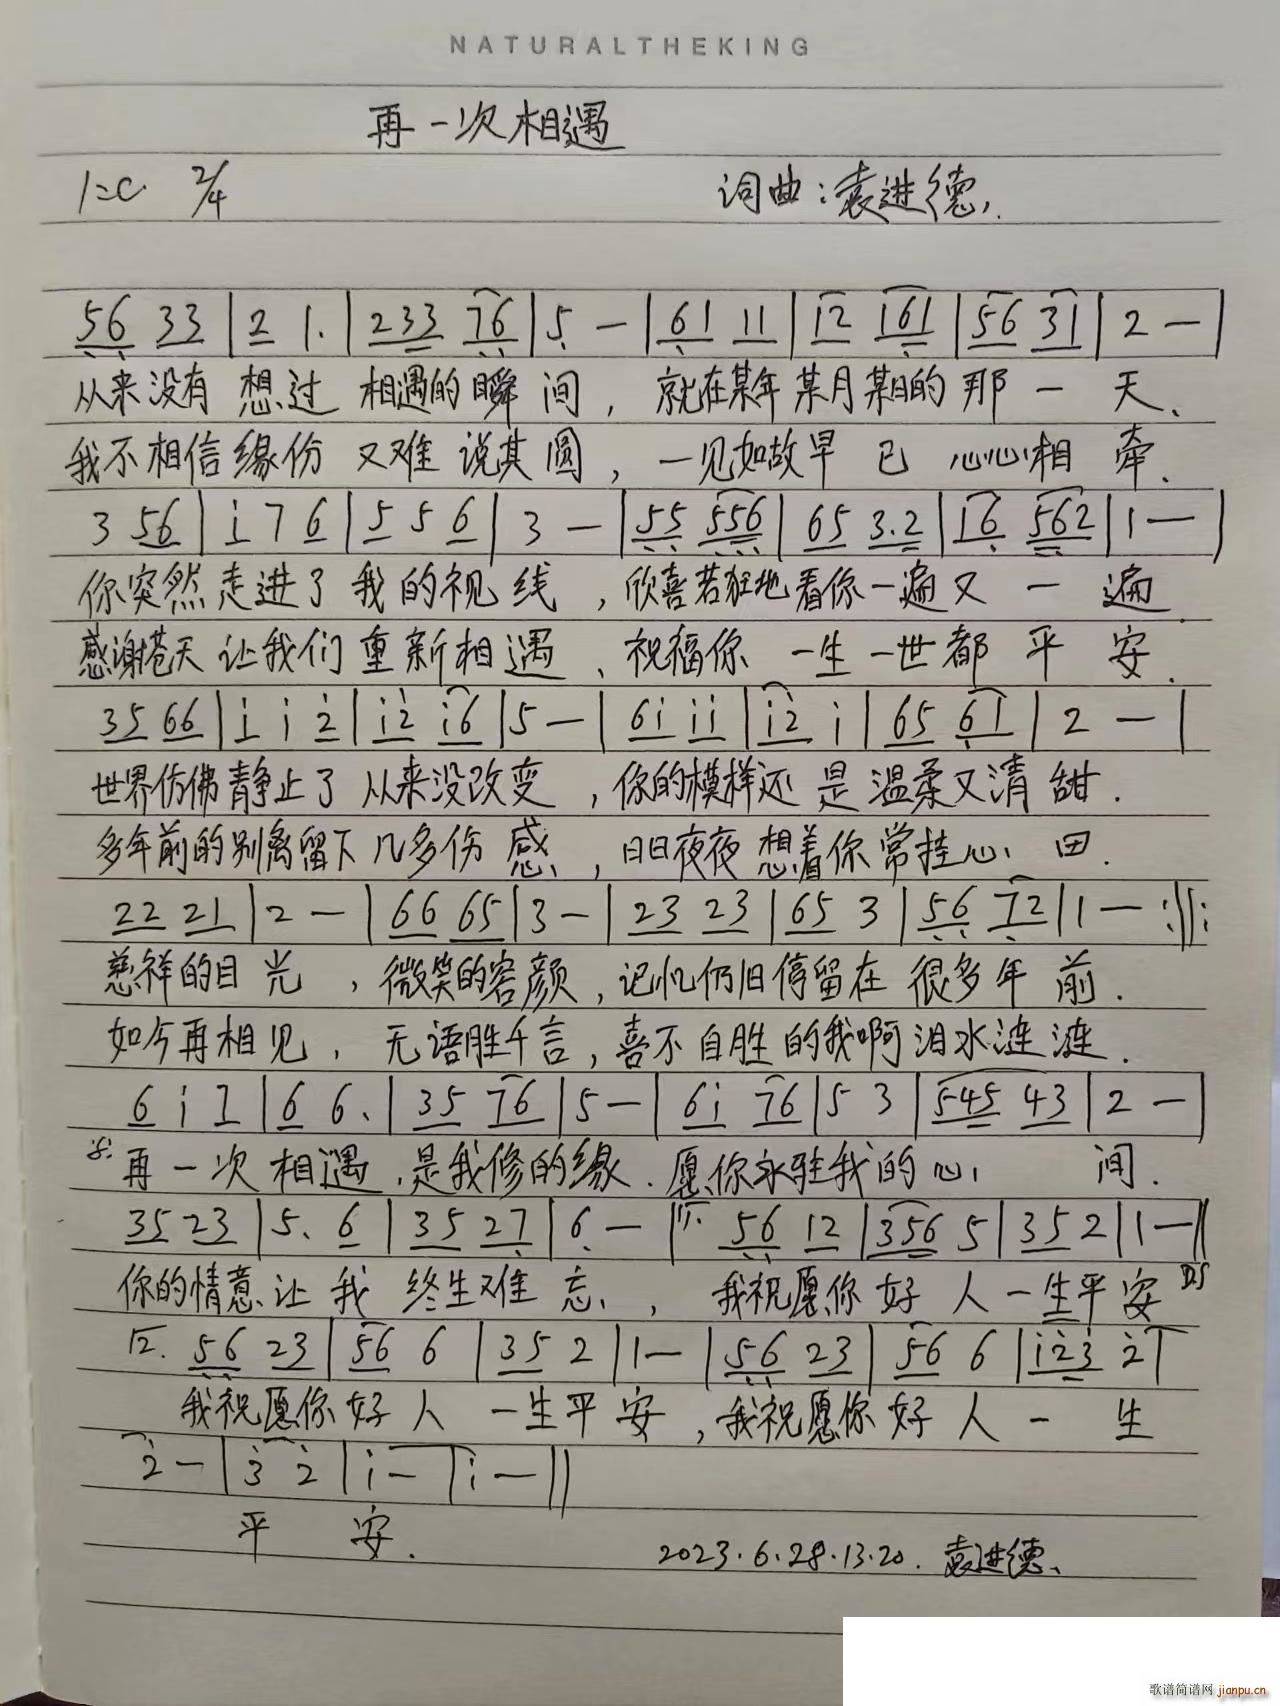 NATURALTHEKING
再一次相遇
1=C 2/4 词曲:袁进德.
56 33 | 2 1. | 233 76 | 5 — | 61 11 | 12 161 | 56 31 | 2 — |
从来没有 想过 相遇的瞬间, 就在某年某月某日的那一天、
我不相信缘份又难说其圆, 一见如故早已心心相牵.
3 56 | i 7 6 | 5 5 6 | 3 — | 55 556 | 65 3.2 | 16 562 | 1 — |
你突然走进了我的视线, 欣喜若狂地看你一遍又一遍.
感谢苍天让我们重新相遇、祝福你一生一世都平安.
35 66 | i i 2 | i2 i6 | 5 — | 6i ii | i2 i | 65 61 | 2 — |
世界仿佛静止了从来没改变, 你的模样还是温柔又清甜.
多年前的别离留下几多伤感, 日日夜夜想着你常挂心田.
22 21 | 2 — | 66 65 | 3 — | 23 23 | 65 3 | 56 72 | 1 — :||:
慈祥的目光, 微笑的容颜, 记忆仍旧停留在很多年前.
如今再相见, 无语胜千言, 喜不自胜的我啊泪水涟涟.
6 i 7 | 6 6. | 35 76 | 5 — | 6i 76 | 5 3 | 545 43 | 2 — |
再一次相遇,是我修的缘.愿你永驻我的心间.
35 23 | 5. 6 | 35 27 | 6 — | 1. 56 12 | 356 5 | 35 2 | 1 — ||
你的情意让我 终生难忘, 我祝愿你好人一生平安 DS
12. 56 23 | 56 6 | 35 2 | 1 — | 56 23 | 56 6 | i23 2 |
我祝愿你好人一生平安, 我祝愿你好人一生
2 — | 3 2 | i — | i — ||
平安.
2023.6.28.13.20. 袁进德、
歌谱简谱网 jianpu.cn